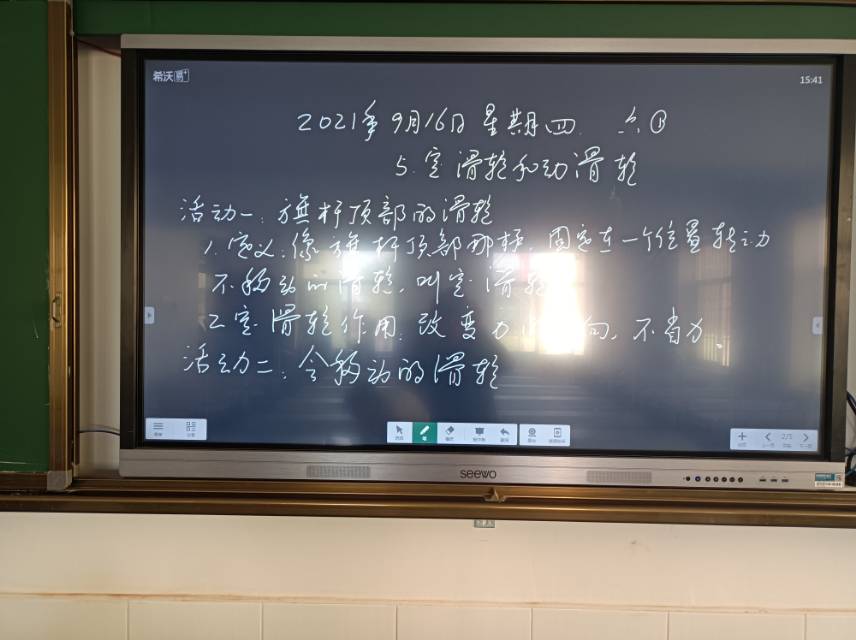 希沃易+
15:41
2021年9月16日 星期四 六①
5.定滑轮和动滑轮
活动一:旗杆顶部的滑轮
1.定义:像旗杆顶部那样,固定在一个位置转动
不移动的滑轮,叫定滑轮
2.定滑轮作用:改变力 向,不省力.
活动二:会移动的滑轮
2/3
seewo